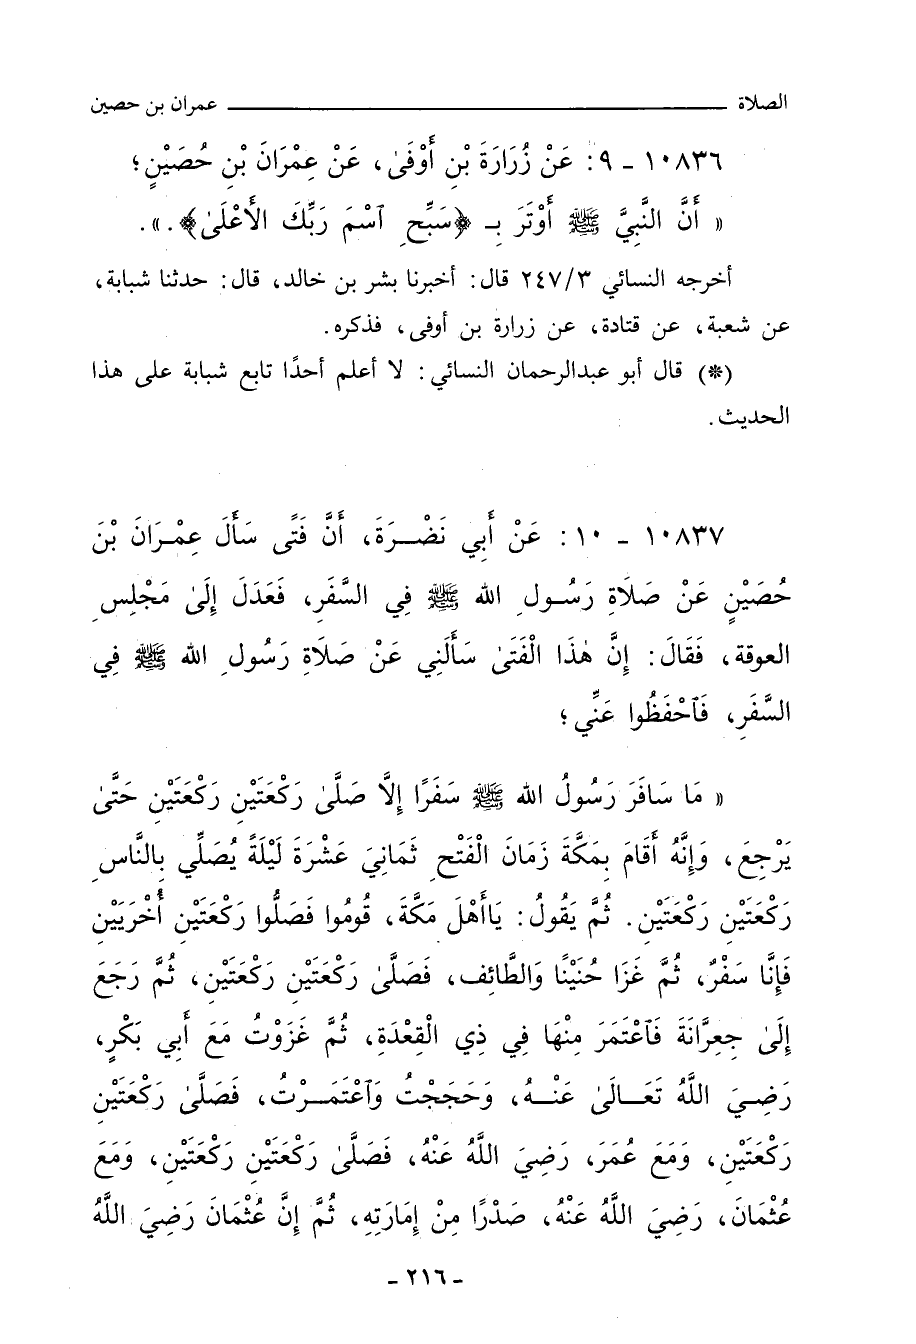 الصلاة ــــــــــــــ عمران بن حصين
١٠٨٣٦ - ٩: عَنْ زُرَارَةَ بْنِ أَوْفَىٰ، عَنْ عِمْرَانَ بْنِ حُصَيْنٍ؛
« أَنَّ النَّبِيَّ ﷺ أَوْتَرَ بِـ ﴿سَبِّحِ ٱسْمَ رَبِّكَ الأَعْلَىٰ﴾.».
أخرجه النسائي ٢٤٧/٣ قال: أخبرنا بشر بن خالد، قال: حدثنا شبابة،
عن شعبة، عن قتادة، عن زرارة بن أوفى، فذكره.
(*) قال أبو عبدالرحمان النسائي: لا أعلم أحدًا تابع شبابة على هذا
الحديث.
١٠٨٣٧ - ١٠: عَنْ أَبِي نَضْـرَةَ، أَنَّ فَتًى سَأَلَ عِمْـرَانَ بْنَ
حُصَيْنٍ عَنْ صَلَاةِ رَسُـولِ الله ﷺ فِي السَّفَرِ، فَعَدَلَ إِلَىٰ مَجْلِسِ
العوقة، فَقَالَ: إِنَّ هٰذَا الْفَتَىٰ سَأَلَنِي عَنْ صَلَاةِ رَسُولِ الله ﷺ فِي
السَّفَرِ، فَٱحْفَظُوا عَنِّي؛
« مَا سَافَرَ رَسُولُ الله ﷺ سَفَرًا إِلَّا صَلَّىٰ رَكْعَتَيْنِ رَكْعَتَيْنِ حَتَّىٰ
يَرْجِعَ، وَإِنَّهُ أَقَامَ بِمَكَّةَ زَمَانَ الْفَتْحِ ثَمَانِيَ عَشْرَةَ لَيْلَةً يُصَلِّي بِالنَّاسِ
رَكْعَتَيْنِ رَكْعَتَيْنِ. ثُمَّ يَقُولُ: يَاأَهْلَ مَكَّةَ، قُومُوا فَصَلُّوا رَكْعَتَيْنِ أُخْرَيَيْنِ
فَإِنَّا سَفْرٌ، ثُمَّ غَزَا حُنَيْنًا وَالطَّائِفَ، فَصَلَّىٰ رَكْعَتَيْنِ رَكْعَتَيْنِ، ثُمَّ رَجَعَ
إِلَىٰ جِعِرَّانَةَ فَٱعْتَمَرَ مِنْهَا فِي ذِي الْقِعْدَةِ، ثُمَّ غَزَوْتُ مَعَ أَبِي بَكْرٍ،
رَضِـيَ اللَّهُ تَعَـالَىٰ عَنْـهُ، وَحَجَجْتُ وَٱعْتَمَـرْتُ، فَصَلَّىٰ رَكْعَتَيْنِ
رَكْعَتَيْنِ، وَمَعَ عُمَرَ، رَضِيَ اللَّهُ عَنْهُ، فَصَلَّىٰ رَكْعَتَيْنِ رَكْعَتَيْنِ، وَمَعَ
عُثْمَانَ، رَضِيَ اللَّهُ عَنْهُ، صَدْرًا مِنْ إِمَارَتِهِ، ثُمَّ إِنَّ عُثْمَانَ رَضِيَ اللَّهُ
- ٢١٦ -